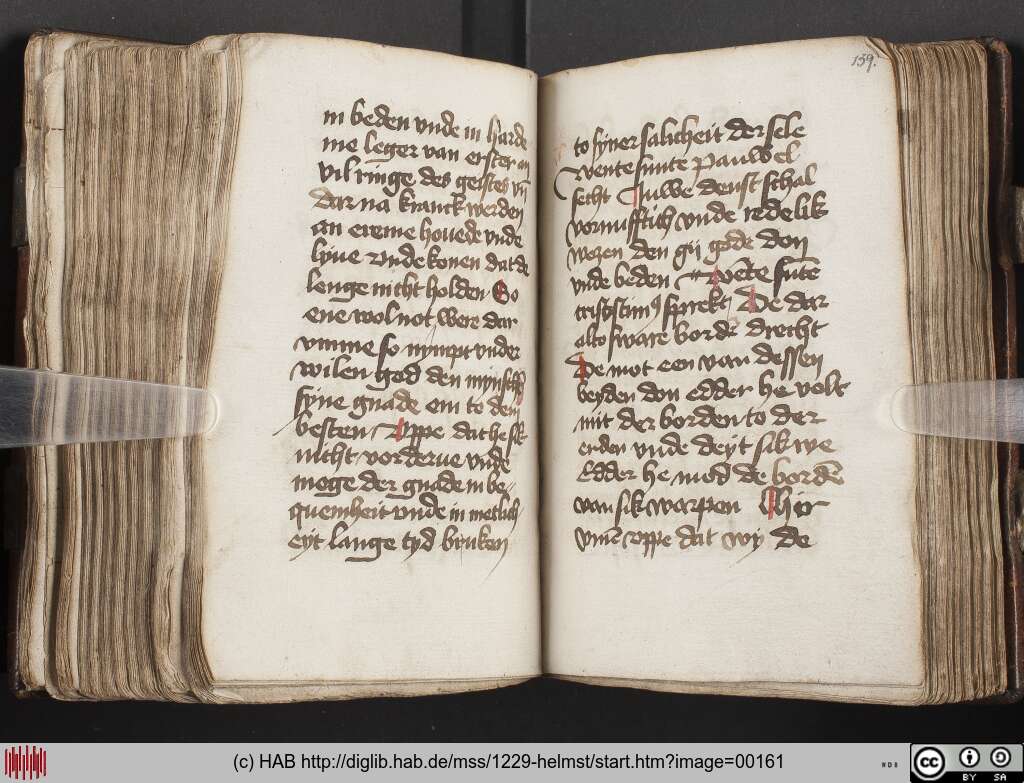 in beden vnde in harde
me leger van erster an
vil ringe des geistes vn̄
dar na kranck werden
an ereme houede vnde
lyue vnde konen dat de
lenge nicht holden So
ene wol not were dar
vmme so nympt vnder
wilen god den mynschē
syne gnade em to dem
besten Vppe dat he sik
nicht vorderue vnde
moge der gnade in be-
quemheit vnde in metlich
eyt lange tyd bruken
159.
to syner salicheit der sele
wente sunte Pauwel
secht Iuwe denst schal
vornufftich vnde redelik
wezen den gy gode don
vnde beden
sprekt De dar
alto sware bordē drecht
De mot een van dessen
beyden don edder he velt
mit der borden to der
erden vnde deyt sik we
Edder he mod de bordē
van sik warpen Hir
vmē vppe dat wy de
(c) HAB http://diglib.hab.de/mss/1229-helmst/start.htm?image=00161
WDB
cc BY SA